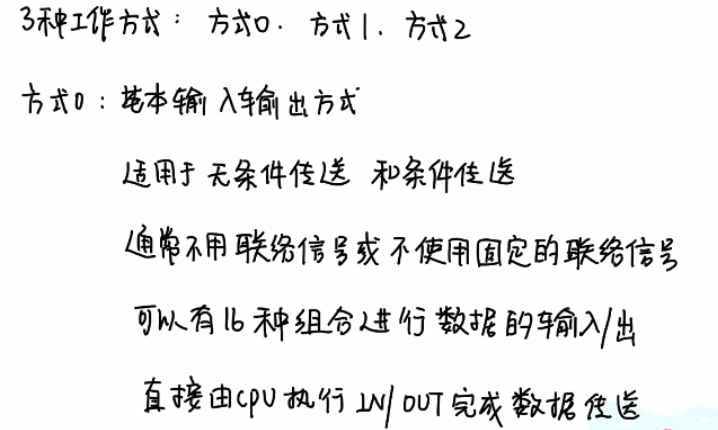 3种工作方式：方式0、方式1、方式2
方式0：基本输入输出方式
适用于无条件传送 和条件传送
通常不用联络信号或不使用固定的联络信号
可以有16种组合进行数据的输入/出
直接由CPU执行IN/OUT完成数据传送